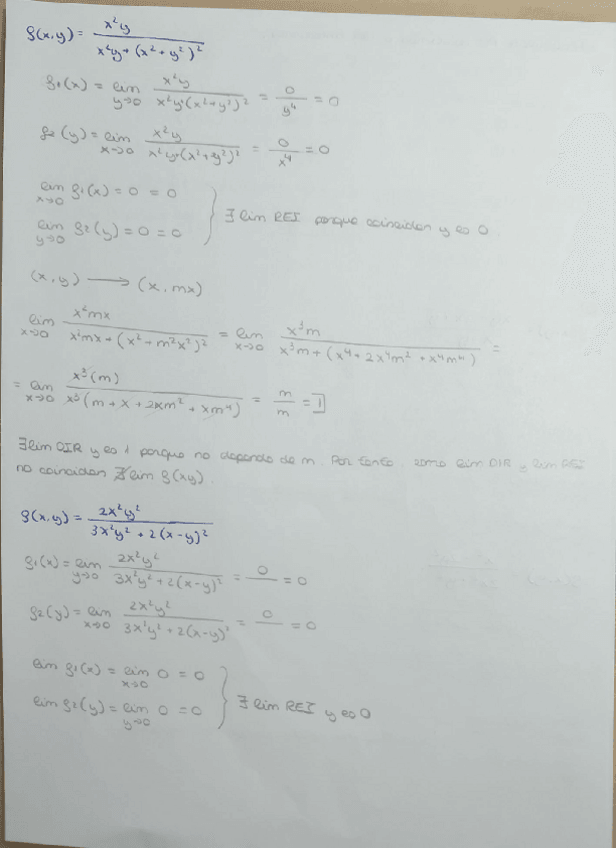 g(x,y) = x²y / x²y + (x² + y²)²
g₁(x) = lim y→0 x²y / x²y+(x²+y²)² = 0 / y⁴ = 0
g₂(y) = lim x→0 x²y / x²y+(x²+y²)² = 0 / x⁴ = 0
lim x→0 g₁(x) = 0 = 0
lim y→0 g₂(y) = 0 = 0 } ∃ lim REI porque coinciden y es 0
(x,y) → (x, mx)
lim x→0 x²mx / x²mx + (x² + m²x²)² = lim x→0 x³m / x³m + (x⁴ + 2x⁴m² + x⁴m⁴) =
= lim x→0 x³(m) / x³(m + x + 2xm² + xm⁴) = m / m = 1
∃ lim DIR y es 1 porque no depende de m. Por tanto, como lim DIR y lim REI
no coinciden ∄ lim g(xy).
g(x,y) = 2x²y² / 3x²y² + 2(x-y)²
g₁(x) = lim y→0 2x²y² / 3x²y² + 2(x-y)² = 0 / = 0
g₂(y) = lim x→0 2x²y² / 3x²y² + 2(x-y)² = 0 / = 0
lim g₁(x) = lim x→0 0 = 0
lim g₂(y) = lim y→0 0 = 0 } ∃ lim REI y es 0